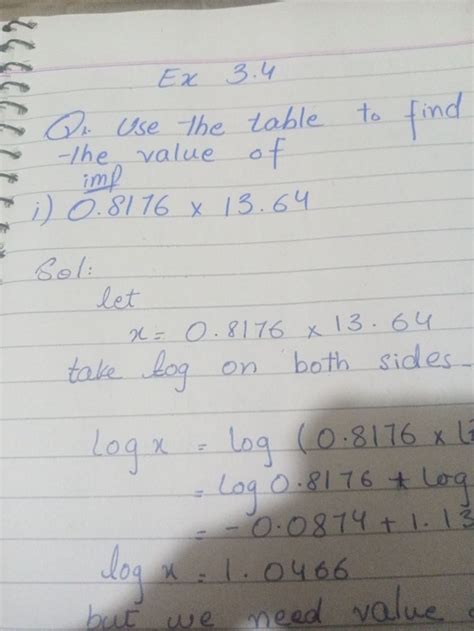 Ex 3.4
Q1. Use the table to find
the value of
imp
i) 0.8176 x 13.64
Sol:
let
x = 0.8176 x 13.64
take log on both sides
log x = log (0.8176 x
= log 0.8176 + log
= -0.0874 + 1.13
log x = 1.0466
but we need value